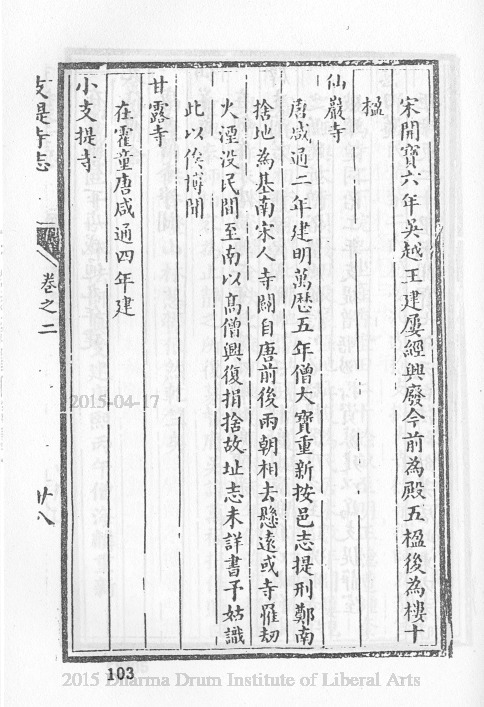 宋開寶六年吳越王建屢經興廢今前為殿五楹後為樓十
楹
仙巖寺
唐咸通二年建明萬曆五年僧大寶重新按邑志提刑鄭南
捨地為基南宋人寺闢自唐前後兩朝相去懸遠或寺罹劫
火湮没民間至南以高僧興復捐捨故址志未詳書予姑識
此以俟博聞
甘露寺
在霍童唐咸通四年建
小支提寺
支提寺志
卷之二
廿八
103
2015-04-17
2015 Dharma Drum Institute of Liberal Arts